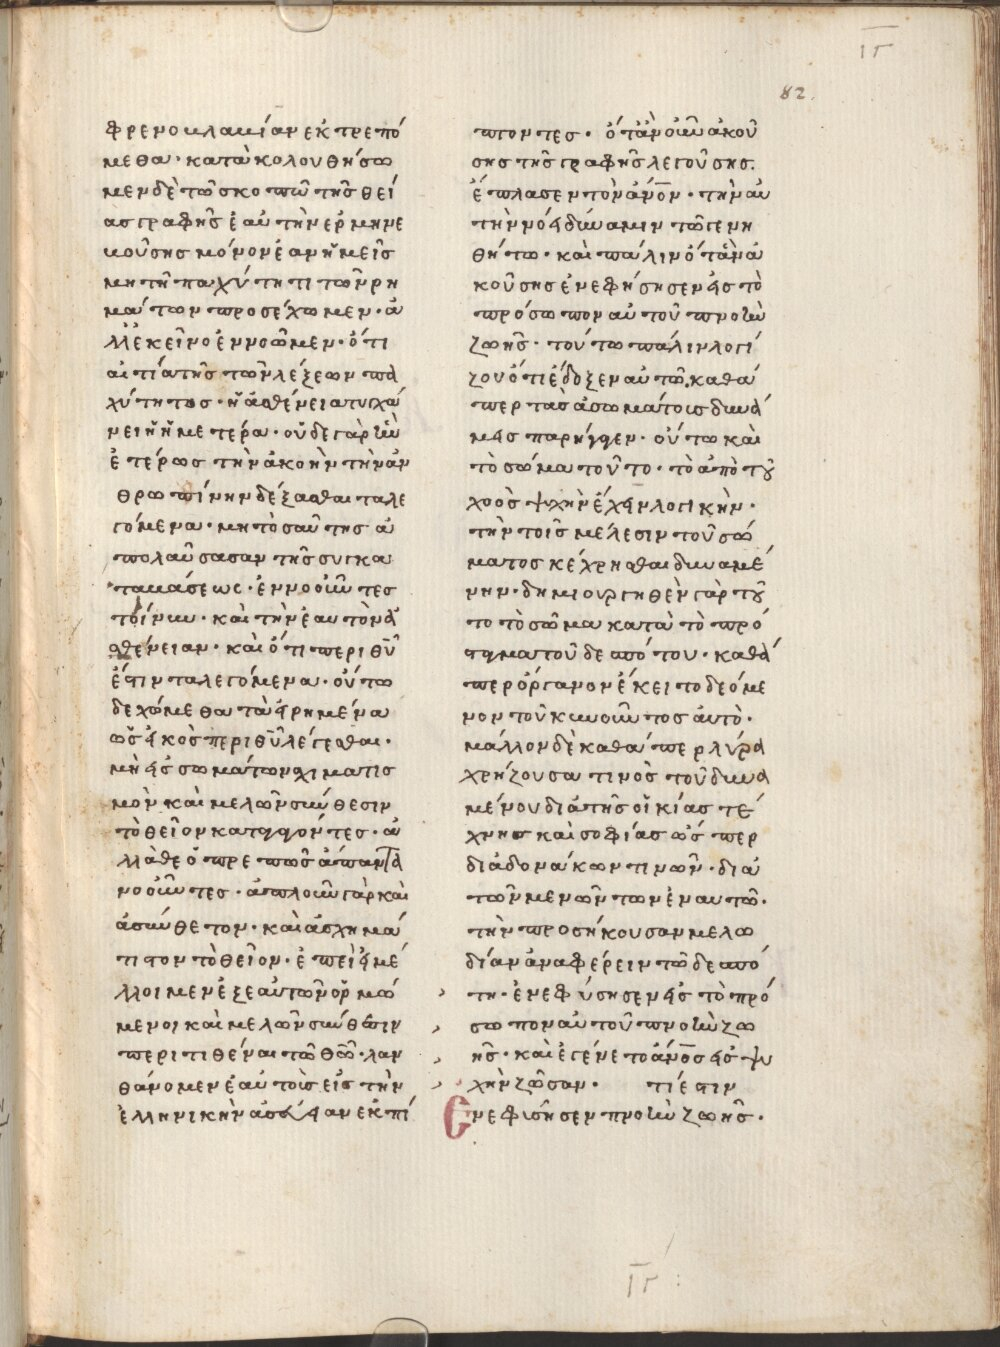 ιγ
82.
φρενοβλαβίαν ἐκτρεπό
μεθα· κατακολουθήσω
μεν δὲ τῶ σκοπῶ τῆς θεί
ας γραφῆς ἑαυτὴν ἑρμηνε
υούσης μόνον ἐὰν ἡμεῖς
μὴ τῆ παχύτητι τῶν ρη
μάτων προσέχωμεν· ἀ
λλ' ἐκεῖνο ἐννοῶμεν· ὅτι
αἰτία τῆς τῶν λέξεων πα
χύτητος· ἡ ἀσθένεια τυγχά
νει ἡ ἡμετέρα· οὐδὲ γὰρ ἦν
ἑτέρως τὴν ἀκοὴν τὴν ἀν
θρωπίνην δέξασθαι τὰ λε
γόμενα· μὴ τοσαύτης ἀ
πολαύσασαν τῆς συγκα
ταβάσεως· ἐννοοῦντες
τοίνυν· καὶ τὴν ἑαυτῶν ἀ
σθένειαν· καὶ ὅτι περὶ θῦ
ἐστιν τὰ λεγόμενα· οὕτω
δεχώμεθα τὰ εἰρημένα
ὡς εἰκὸς περὶ θῦ λέγεσθαι·
μὴ εἰς σωμάτων σχηματισ
μὸν καὶ μελῶν σύνθεσιν
τὸ θεῖον κατάγοντες· ἀ
λλὰ θεοπρεπῶς ἅπαντα
νοοῦντες· ἁπλοῦν γὰρ καὶ
ἀσύνθετον· καὶ ἀσχημά
τιστον τὸ θεῖον· ἐπεὶ εἰ μέ
λλοιμεν ἐξ ἑαυτῶν ὁρμώ
μενοι καὶ μελῶν σύνθεσιν
περιτιθέναι τῶ θῶ· λαν
θάνομεν ἑαυτοὺς εἰς τὴν
ἑλληνικὴν ἀσέβειαν ἐκπί
πτοντες· ὅταν οὖν ἀκού
σης τῆς γραφῆς λεγούσης·
ἔπλασεν τὸν ἄνον· τὴν αὐ
τὴν νόει δύναμιν τῶ γενη
θήτω· καὶ πάλιν ὅταν ἀ
κούσης ἐνεφήσησεν εἰς τὸ
πρόσωπον αὐτοῦ πνοὴν
ζωῆς· τούτω πάλιν λογί
ζου ὅτι ἔδοξεν αὐτῶ. καθά
περ τὰς ἀσωμάτους δυνά
μεις παρήγαγεν· οὕτω καὶ
τὸ σῶμα τοῦτο· τὸ ἀπὸ τοῦ
χοὸς ψυχὴν ἔχειν λογικὴν·
τὴν τοῖς μέλεσιν τοῦ σώ
ματος κεχρῆσθαι δυναμέ
νην· δημιουργηθὲν γὰρ τοῦ
το τὸ σῶμα κατὰ τὸ πρό
σταγμα τοῦ δεσπότου· καθά
περ ὄργανον ἔκειτο δεόμε
νον τοῦ κινοῦντος αὐτό·
μᾶλλον δὲ καθάπερ λύρα
χρήζουσα τινὸς τοῦ δυνα
μένου διὰ τῆς οἰκείας τέ
χνης καὶ σοφίας ὥσπερ
διὰ δονάκων τινῶν· διὰ
τῶν μενῶν τῶν ἐν αυτῶ·
τὴν προσήκουσαν μελω
δίαν ἀναφέρειν τῶ δεσπό
τη· ἐνεφύσησεν εἰς τὸ πρό
σωπον αὐτοῦ πνοὴν ζω
ῆς· καὶ ἐγένετο ὁ ἄνος εἰς ψυ
χὴν ζῶσαν· τί ἐστιν
Ἐνεφύσησεν πνοὴν ζωῆς·
ιγ